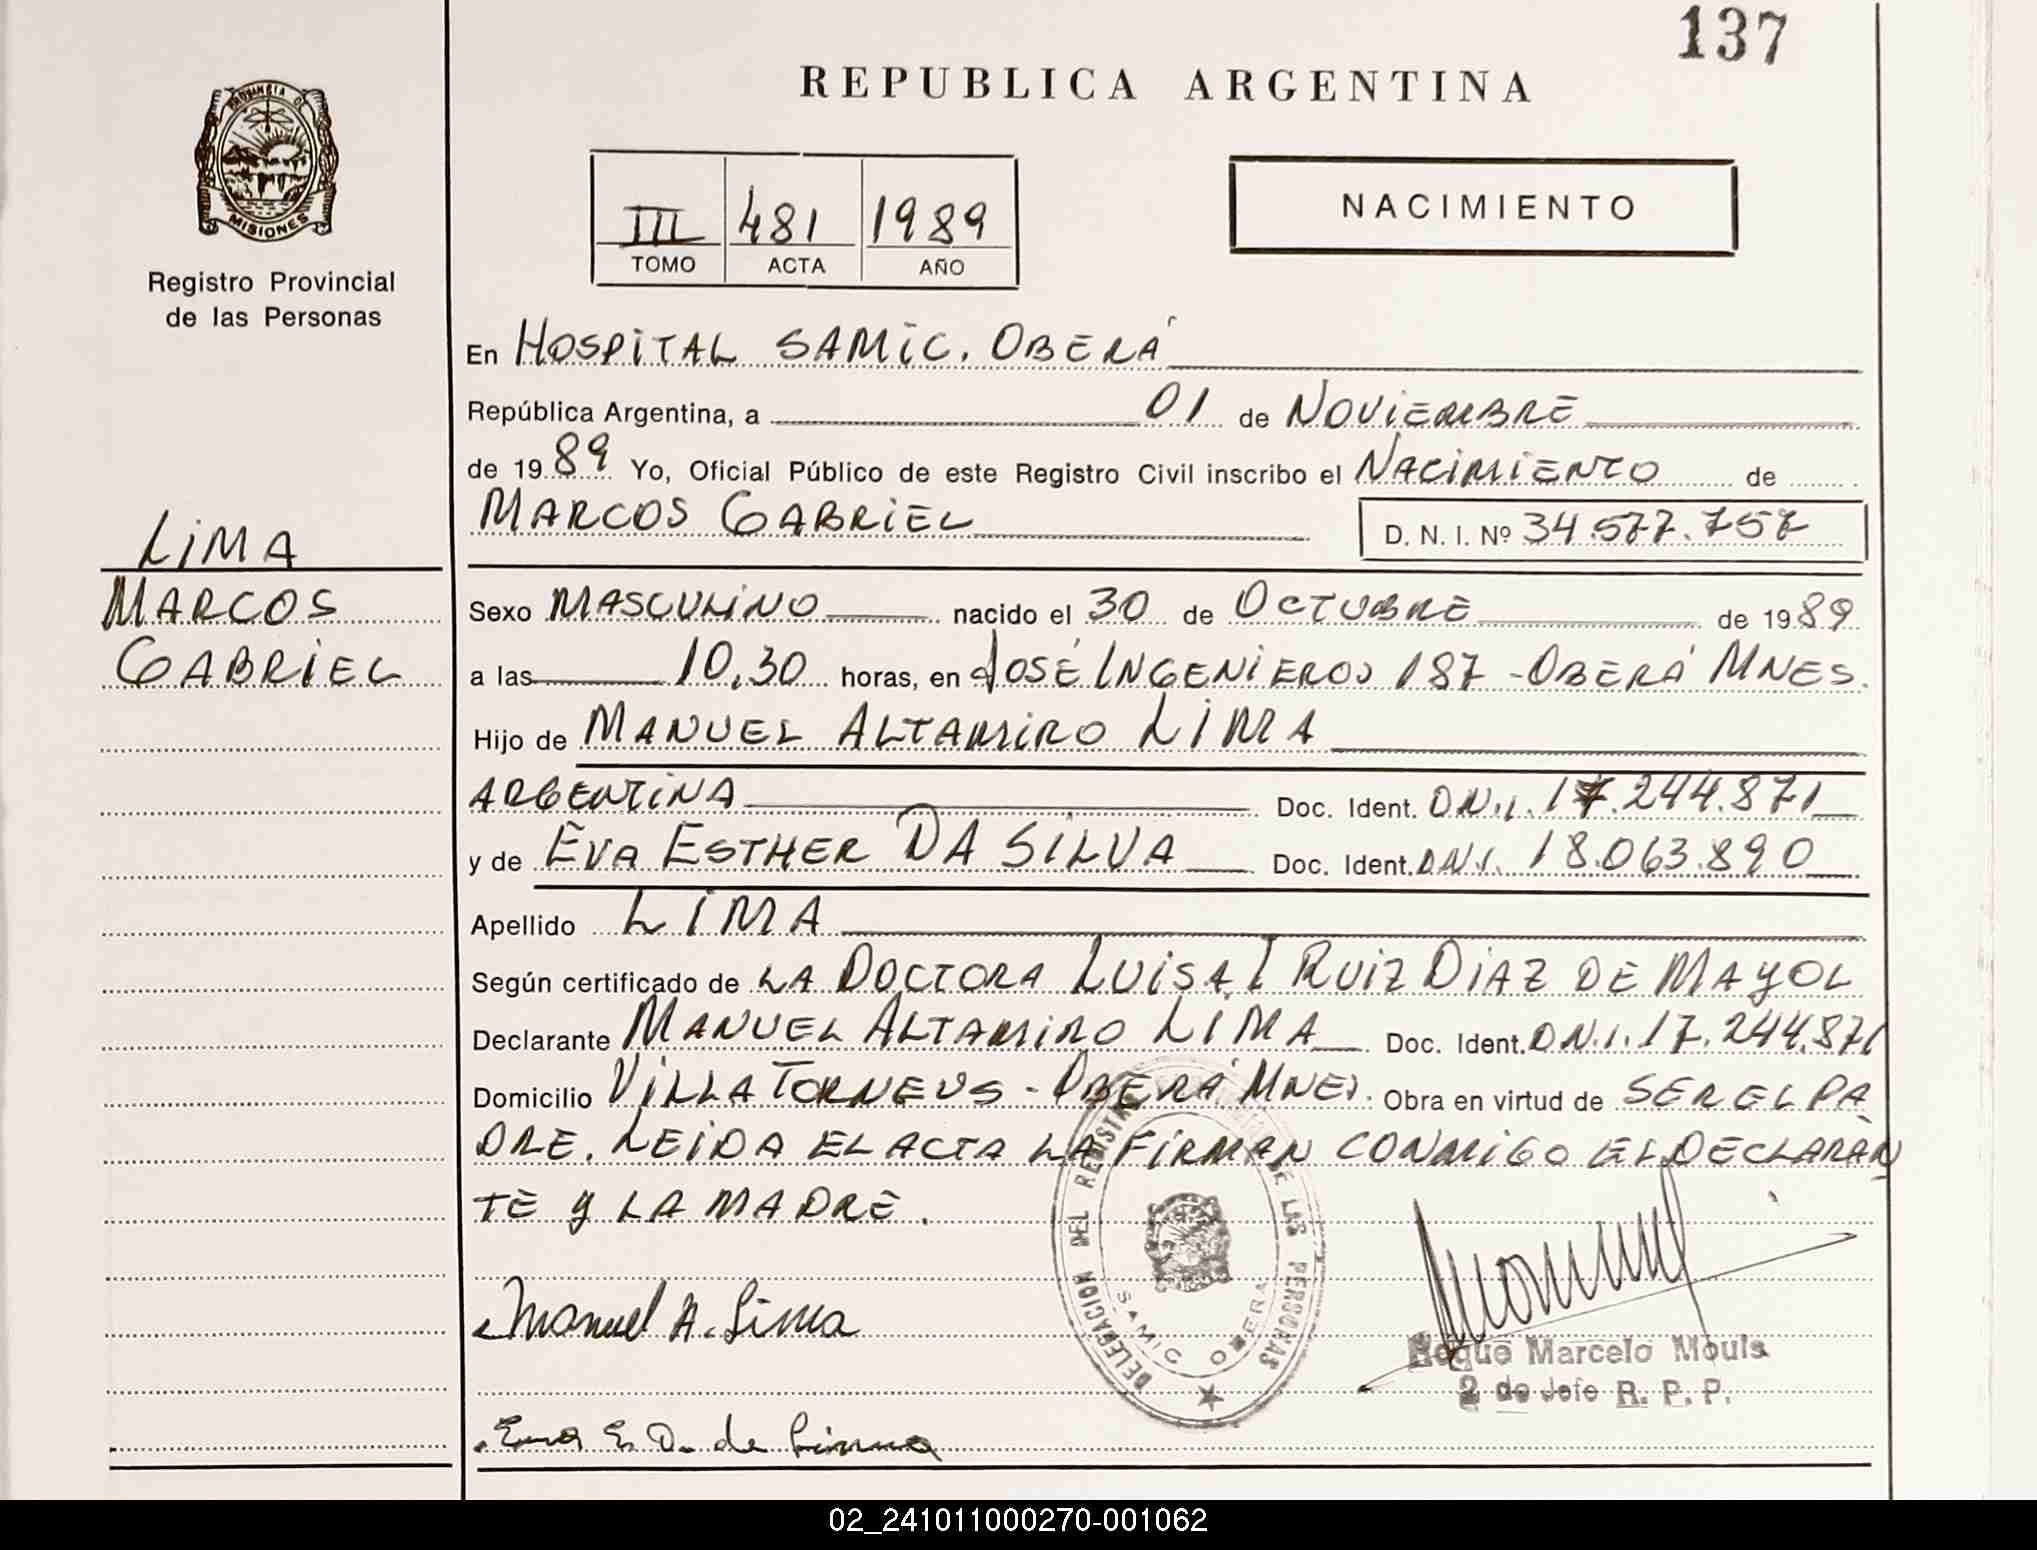 137
REPUBLICA ARGENTINA
PROVINCIA DE
MISIONES
Registro Provincial
de las Personas
III 481 1989
TOMO ACTA AÑO
NACIMIENTO
En HOSPITAL SAMIC. OBERÁ
República Argentina, a 01 de NOVIEMBRE
de 1989 Yo, Oficial Público de este Registro Civil inscribo el NACIMIENTO de
MARCOS GABRIEL D. N. I. Nº 34.577.757
LIMA
MARCOS
GABRIEL
Sexo MASCULINO nacido el 30 de OCTUBRE de 1989
a las 10,30 horas, en JOSÉ INGENIEROS 187 - OBERÁ MNES.
Hijo de MANUEL ALTAMIRO LIMA
ARGENTINA Doc. Ident. D.N.I. 17.244.871
y de EVA ESTHER DA SILVA Doc. Ident. D.N.I. 18.063.890
Apellido LIMA
Según certificado de LA DOCTORA LUISA I RUIZ DIAZ DE MAYOL
Declarante MANUEL ALTAMIRO LIMA Doc. Ident. D.N.I. 17.244.871
Domicilio VILLA TORNEUS - OBERÁ MNES. Obra en virtud de SER EL PA
DRE. LEIDA EL ACTA LA FIRMAN CONMIGO EL DECLARAN
TE Y LA MADRE.
DELEGACION DEL REGISTRO DE LAS PERSONAS
SAMIC OBERA
Manuel A. Lima
Roque Marcelo Mouls
2 de Jefe R. P. P.
Eva E. D. de Lima
02_241011000270-001062